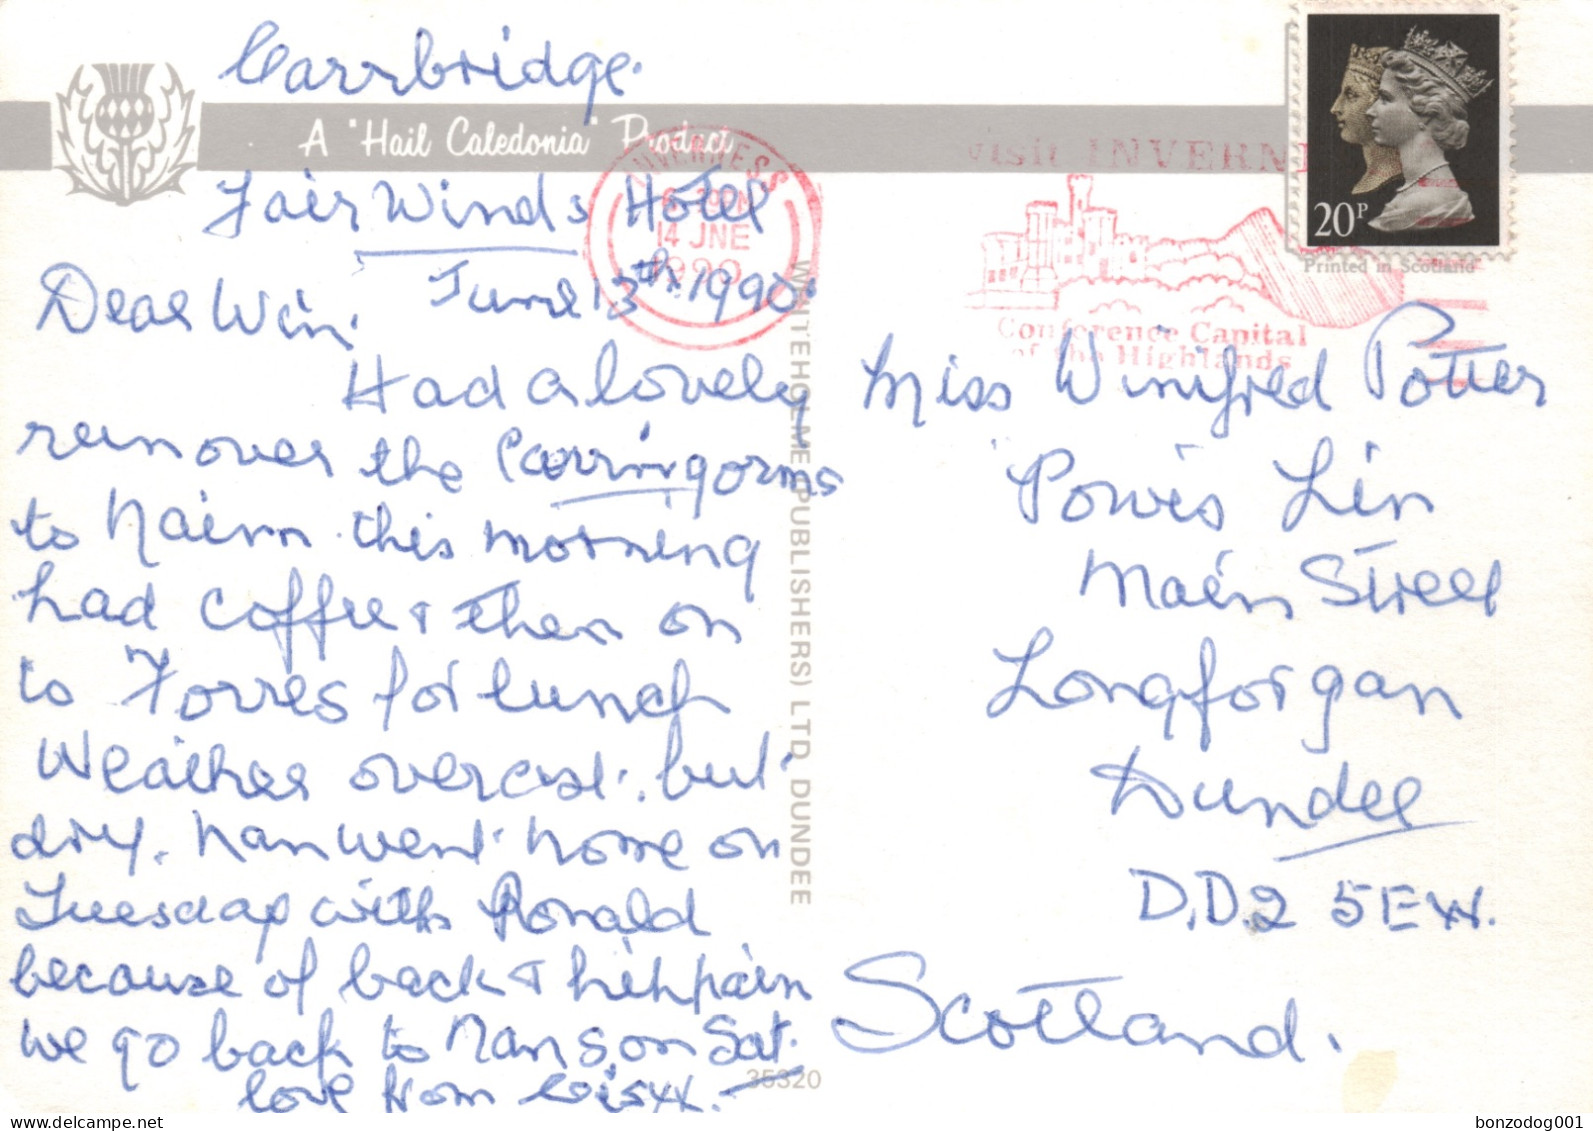 Carrbridge.
A "Hail Caledonia" Product
Fair Winds Hotel
June 13th. 1990.
Dear Win.
Had a lovely
run over the Carringorms
to Nairn this morning
had coffee & then on
to Forres for lunch
Weather overcast. but
dry. Nan went home on
Tuesday with Ronald
because of back & hip pain
we go back to Nan's on Sat.
love from xx.
INVERNESS
PM
14 JNE
1990
visit INVERN
Conference Capital
of the Highlands
20P
Printed in Scotland
WHITEHOLME (PUBLISHERS) LTD. DUNDEE
Miss Winifred Potter
Powis Lin
Main Street
Longforgan
Dundee
D.D.2 5EW.
Scotland.
35320
delcampe.net
bonzodog001